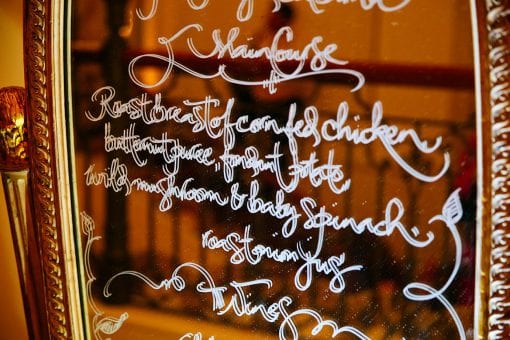 Main Course
Roast breast of corn fed chicken,
butternut puree "fondant potato"
wild mushroom & baby spinach.
roast onion jus
Wines